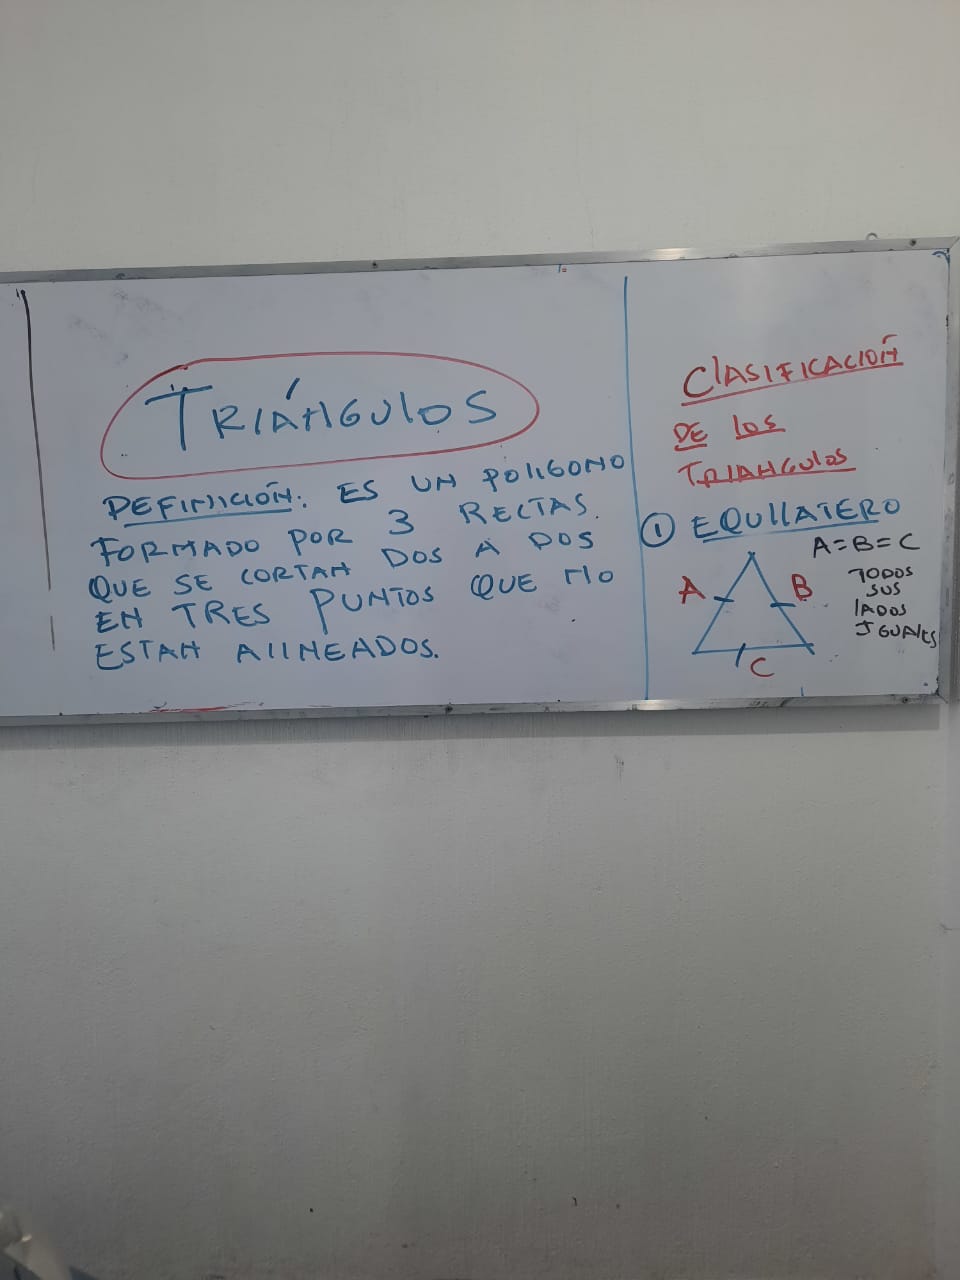 TRIÁNGULOS
DEFINICIÓN: ES UN POLIGONO
FORMADO POR 3 RECTAS.
QUE SE CORTAN DOS A DOS
EN TRES PUNTOS QUE NO
ESTAN AlINEADOS.
ClASIFICACIÓN
DE los
TRIANGUlos
① EQUILATERO
A=B=C
TODOS
SUS
lADOS
IGUALES
A
B
C